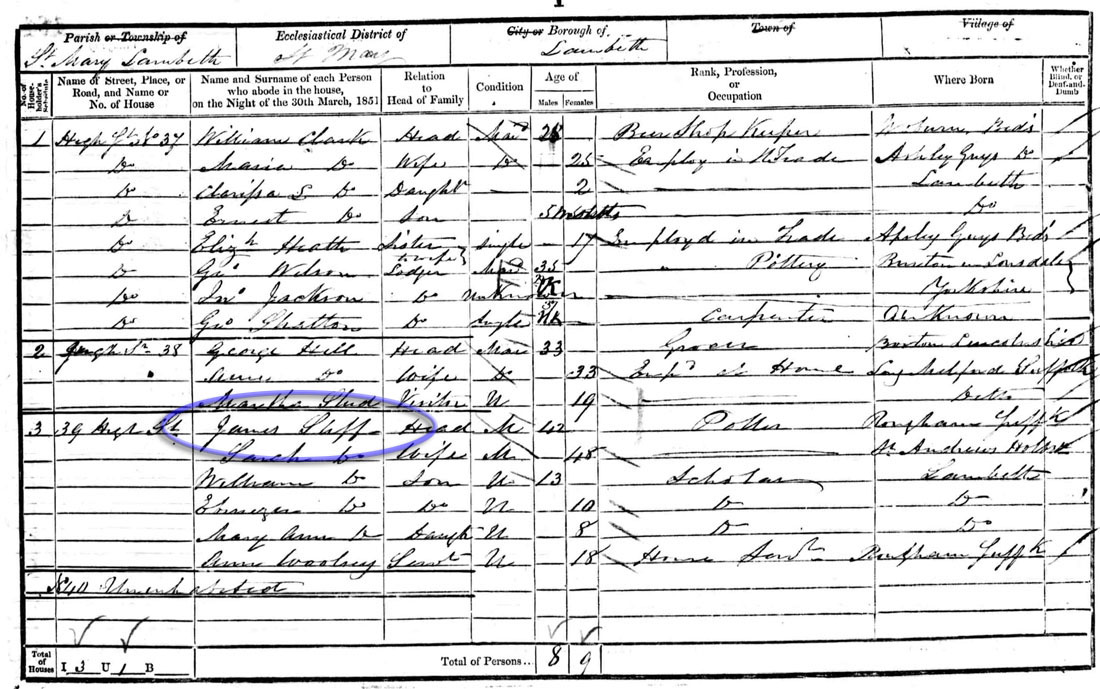 Parish or Township of Ecclesiastical District of City or Borough of Town of Village of
St Mary Lambeth St Mary Lambeth
No. of House-holder's Schedule Name of Street, Place, or Road, and Name or No. of House Name and Surname of each Person who abode in the house, on the Night of the 30th March, 1851 Relation to Head of Family Condition Age of Males Females Rank, Profession, or Occupation Where Born Whether Blind, or Deaf-and-Dumb
1 High St No 37 William Clark Head Mar Beer Shop Keeper Woburn Beds
Do Maria Do Wife Do 25 Employ in Trade Apsley Guys Do
Do Clarissa S Do Daughtr 2 Lambeth
Do Ernest Do Son 5 Months Do
Do Elizh Heath Sister to wife Single 17 Employd in Trade Apsley Guys Beds
Do Geo Wilson Lodger Mar 35 " Pottery Burton in Lonsdale Yorkshire
Do Jno Jackson Do Unknown
Do Geo Do Single Carpenter Unknown
2 High St 38 George Hill Head Mar 33 Grocer Lincolnshire
Anne Do Wife Do 33 Empd at Home Suffolk
Martha Visitor U 19 Ditto
3 39 High St James Stiff Head M 42 Potter Rougham Suffk
Sarah Do Wife M 48 St Andrews Holborn
William Do Son U 13 Scholar Lambeth
Ebenezer Do Do U 10 Do Do
Mary Ann Do Daugh U 8 Do Do
Ann Woolsey Servt U 18 House Servt Suffk
No 40 Uninhabited
Total of Houses I 3 U 1 B Total of Persons... 8 9